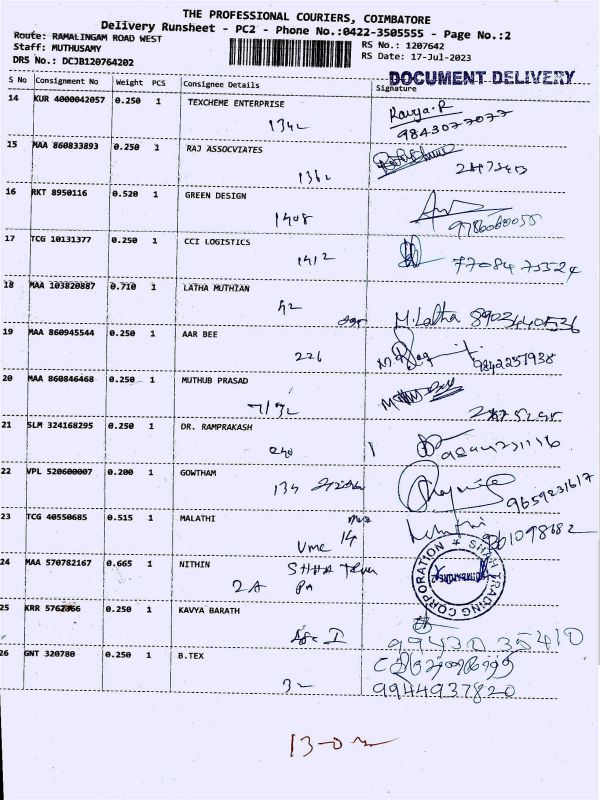 THE PROFESSIONAL COURIERS, COIMBATORE
Delivery Runsheet - PC2 - Phone No.:0422-3505555 - Page No.:2
Route: RAMALINGAM ROAD WEST
Staff: MUTHUSAMY RS No.: 1207642
DRS No.: DCJB120764202 RS Date: 17-Jul-2023
DOCUMENT DELIVERY
S No Consignment No Weight PCS Consignee Details Signature
14 KUR 4000042057 0.250 1 TEXCHEME ENTERPRISE Kavya.R
1342 9843077077
15 MAA 860833893 0.250 1 RAJ ASSOCVIATES
1362
16 RKT 8950116 0.520 1 GREEN DESIGN
1408
17 TCG 10131377 0.250 1 CCI LOGISTICS
1412
18 MAA 103820887 0.710 1 LATHA MUTHIAN
42 M.Latha
19 MAA 860945544 0.250 1 AAR BEE
226 9842237938
20 MAA 860846468 0.250 1 MUTHUB PRASAD
21 SLM 324168295 0.250 1 DR. RAMPRAKASH
240
22 VPL 520600007 0.200 1 GOWTHAM
134 9659231617
23 TCG 40550685 0.515 1 MALATHI
14
24 MAA 570782167 0.665 1 NITHIN
2A
SHAH TRADING CORPORATION
25 KRR 5762366 0.250 1 KAVYA BARATH
99430 35410
26 GNT 320780 0.250 1 B.TEX
32 9944937820